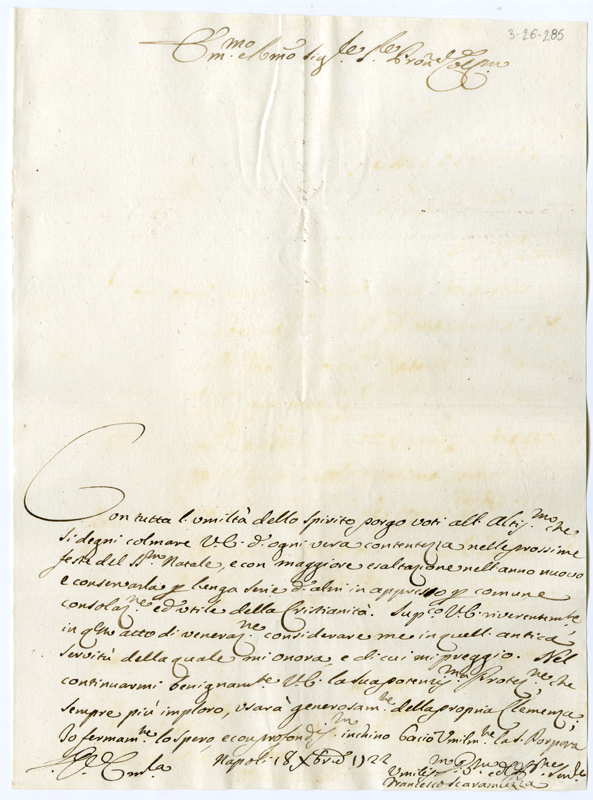 3-26-285
Em.mo e Rmo Sig.re S.re Prōn Col.mo
Con tutta l'umiltà dello spirito porgo voti all'Altiss.mo che
si degni colmare V.E. d'ogni vera contentezza nelle prossime
feste del SS.mo Natale, e con maggiore esaltazione nell'anno nuovo
e conservarla p lunga serie d'altri in appresso p comune
consolaz.ne ed utile della Cristianità. Sup.co V.E. riverentem.te
in q.sto atto di veneraz.ne considerare me in quell'antica
servitù della quale mi onora, e di cui mi preggio. Nel
continuarmi benignam.te V.E. la sua potentiss.ma Protez.ne che
sempre più imploro, userà generosam.te della propria Clemenza;
Io fermam.te lo spero, e con profondiss.mo inchino bacio umilm.te la S. Porpora
Napoli 18 Xbre 1722
Francesco Scaramuzza